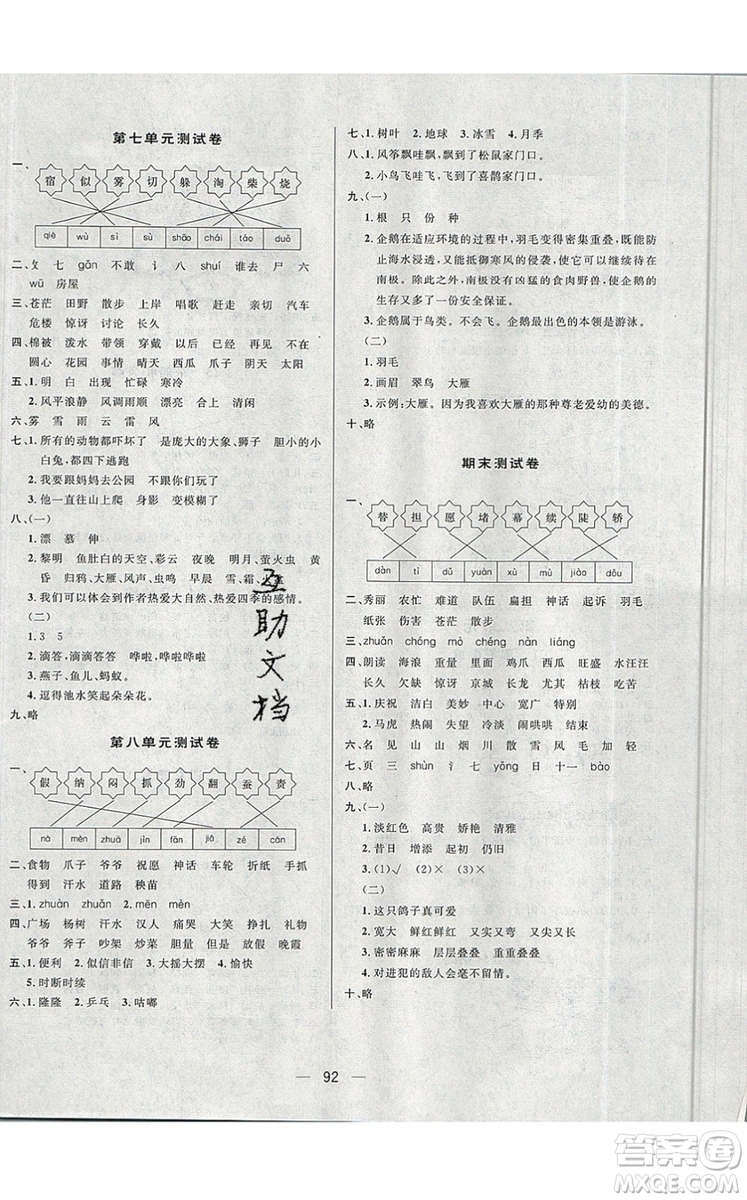 第七单元测试卷
一、
宿 似 雾 切 躲 淘 柴 烧
qiè wù sì sù shāo chái táo duǒ
二、攵 七 gǎn 不敢 讠 八 shuí 谁去 尸 六
wū 房屋
三、苍茫 田野 散步 上岸 唱歌 赶走 亲切 汽车
危楼 惊讶 讨论 长久
四、棉被 泼水 带领 穿戴 以后 已经 再见 不在
圆心 花园 事情 晴天 西瓜 爪子 阴天 太阳
五、1.明 白 出现 忙碌 寒冷
2.风平浪静 风调雨顺 漂亮 上岸 清闲
六、雾 雪 雨 云 雷 风
七、1.所有的动物都吓坏了 是庞大的大象、狮子 胆小的小
白兔、都四下逃跑
2.我要跟妈妈去公园 不但我要跟妈妈去公园
3.他一直往山上爬 身影 变模糊了
八、(一)
1.漂 慕 伸
2.黎明 鱼肚白的天空、彩云 夜晚 明月、萤火虫 黄
昏 归鸦、大雁、虫鸣 早晨 雪、霜、火盆
3.我们可以体会到作者热爱大自然、热爱四季的感情。
(二)
1.3 5
2.滴答,滴滴答答 哗啦,哗啦哗啦
3.燕子、鱼儿、蚂蚁。
4.逗得池水笑起朵朵花。
九、略
第八单元测试卷
一、
假 纳 闷 抓 劲 翻 蚕 责
nà mèn zhuā jìn fān jiǎ zé cán
二、食物 爪子 爷爷 祝愿 神话 车轮 折纸 手抓
得到 汗水 道路 秧苗
三、1.zhuàn zhuǎn 2.mēn mèn
四、广场 杨树 汗水 汉人 痛哭 大笑 挣扎 礼物
爷爷 斧子 吵架 炒菜 胆量 但是 放假 晚霞
五、1.便利 2.似信非信 3.大摇大摆 4.愉快
5.时断时续
六、1.隆隆 2.乒乓 3.咕嘟
七、1.树叶 2.地球 3.冰雪 4.月季
八、1.风筝飘哇飘,飘到了松鼠家门口。
2.小鸟飞哇飞,飞到了喜鹊家门口。
九、(一)
1.根 只 份 种
2.企鹅在适应环境的过程中,羽毛变得密集重叠,可以防
止海水浸透,又能抵御寒风的侵袭,使它们能够生活在
南极。而且,南极没有凶猛的食肉野兽,它给企鹅的
生存又多了一份安全保证。
3.企鹅属于鸟类。不会飞。企鹅最出色的本领是游泳。
(二)
1.羽毛
2.画眉 翠鸟 大雁
3.示例:大雁。因为我喜欢大雁的那种尊老爱幼的美德。
十、略
期末测试卷
一、
替 担 愿 堵 幕 续 陡 轿
dàn tì dǔ yuàn xù mù jiào dǒu
二、秀丽 农忙 难道 队伍 扁担 神话 起诉 羽毛
纸张 伤害 苍茫 散步
三、zhuǎn chéng mò chéng nàn liáng
四、朗读 海浪 重量 里面 鸡爪 西瓜 旺盛 水汪汪
长久 欠缺 惊讶 京城 长大 枯枝 困难 因果
五、1.庆祝 洁白 美妙 中心 宽广 特别
2.马虎 热闹 失望 冷淡 闹哄哄 结束
六、名 见 山 山 烟 川 散 雪 风 毛 加 轻
七、页 三 shùn 氵 七 yǒng 日 十一 bào
八、略
九、(一)
1.淡红色 高贵 娇艳 清雅
2.昔日 增添 起初 仍旧
3.(1)√ (2)× (3)×
(二)
1.这只鸽子真可爱
2.宽大 鲜红鲜红 又尖又长
3.密密麻麻 层层叠叠 重重叠叠
4.对进犯的敌人会毫不留情。
十、略
互助文档
— 92 —
答案圈
MXQE.COM